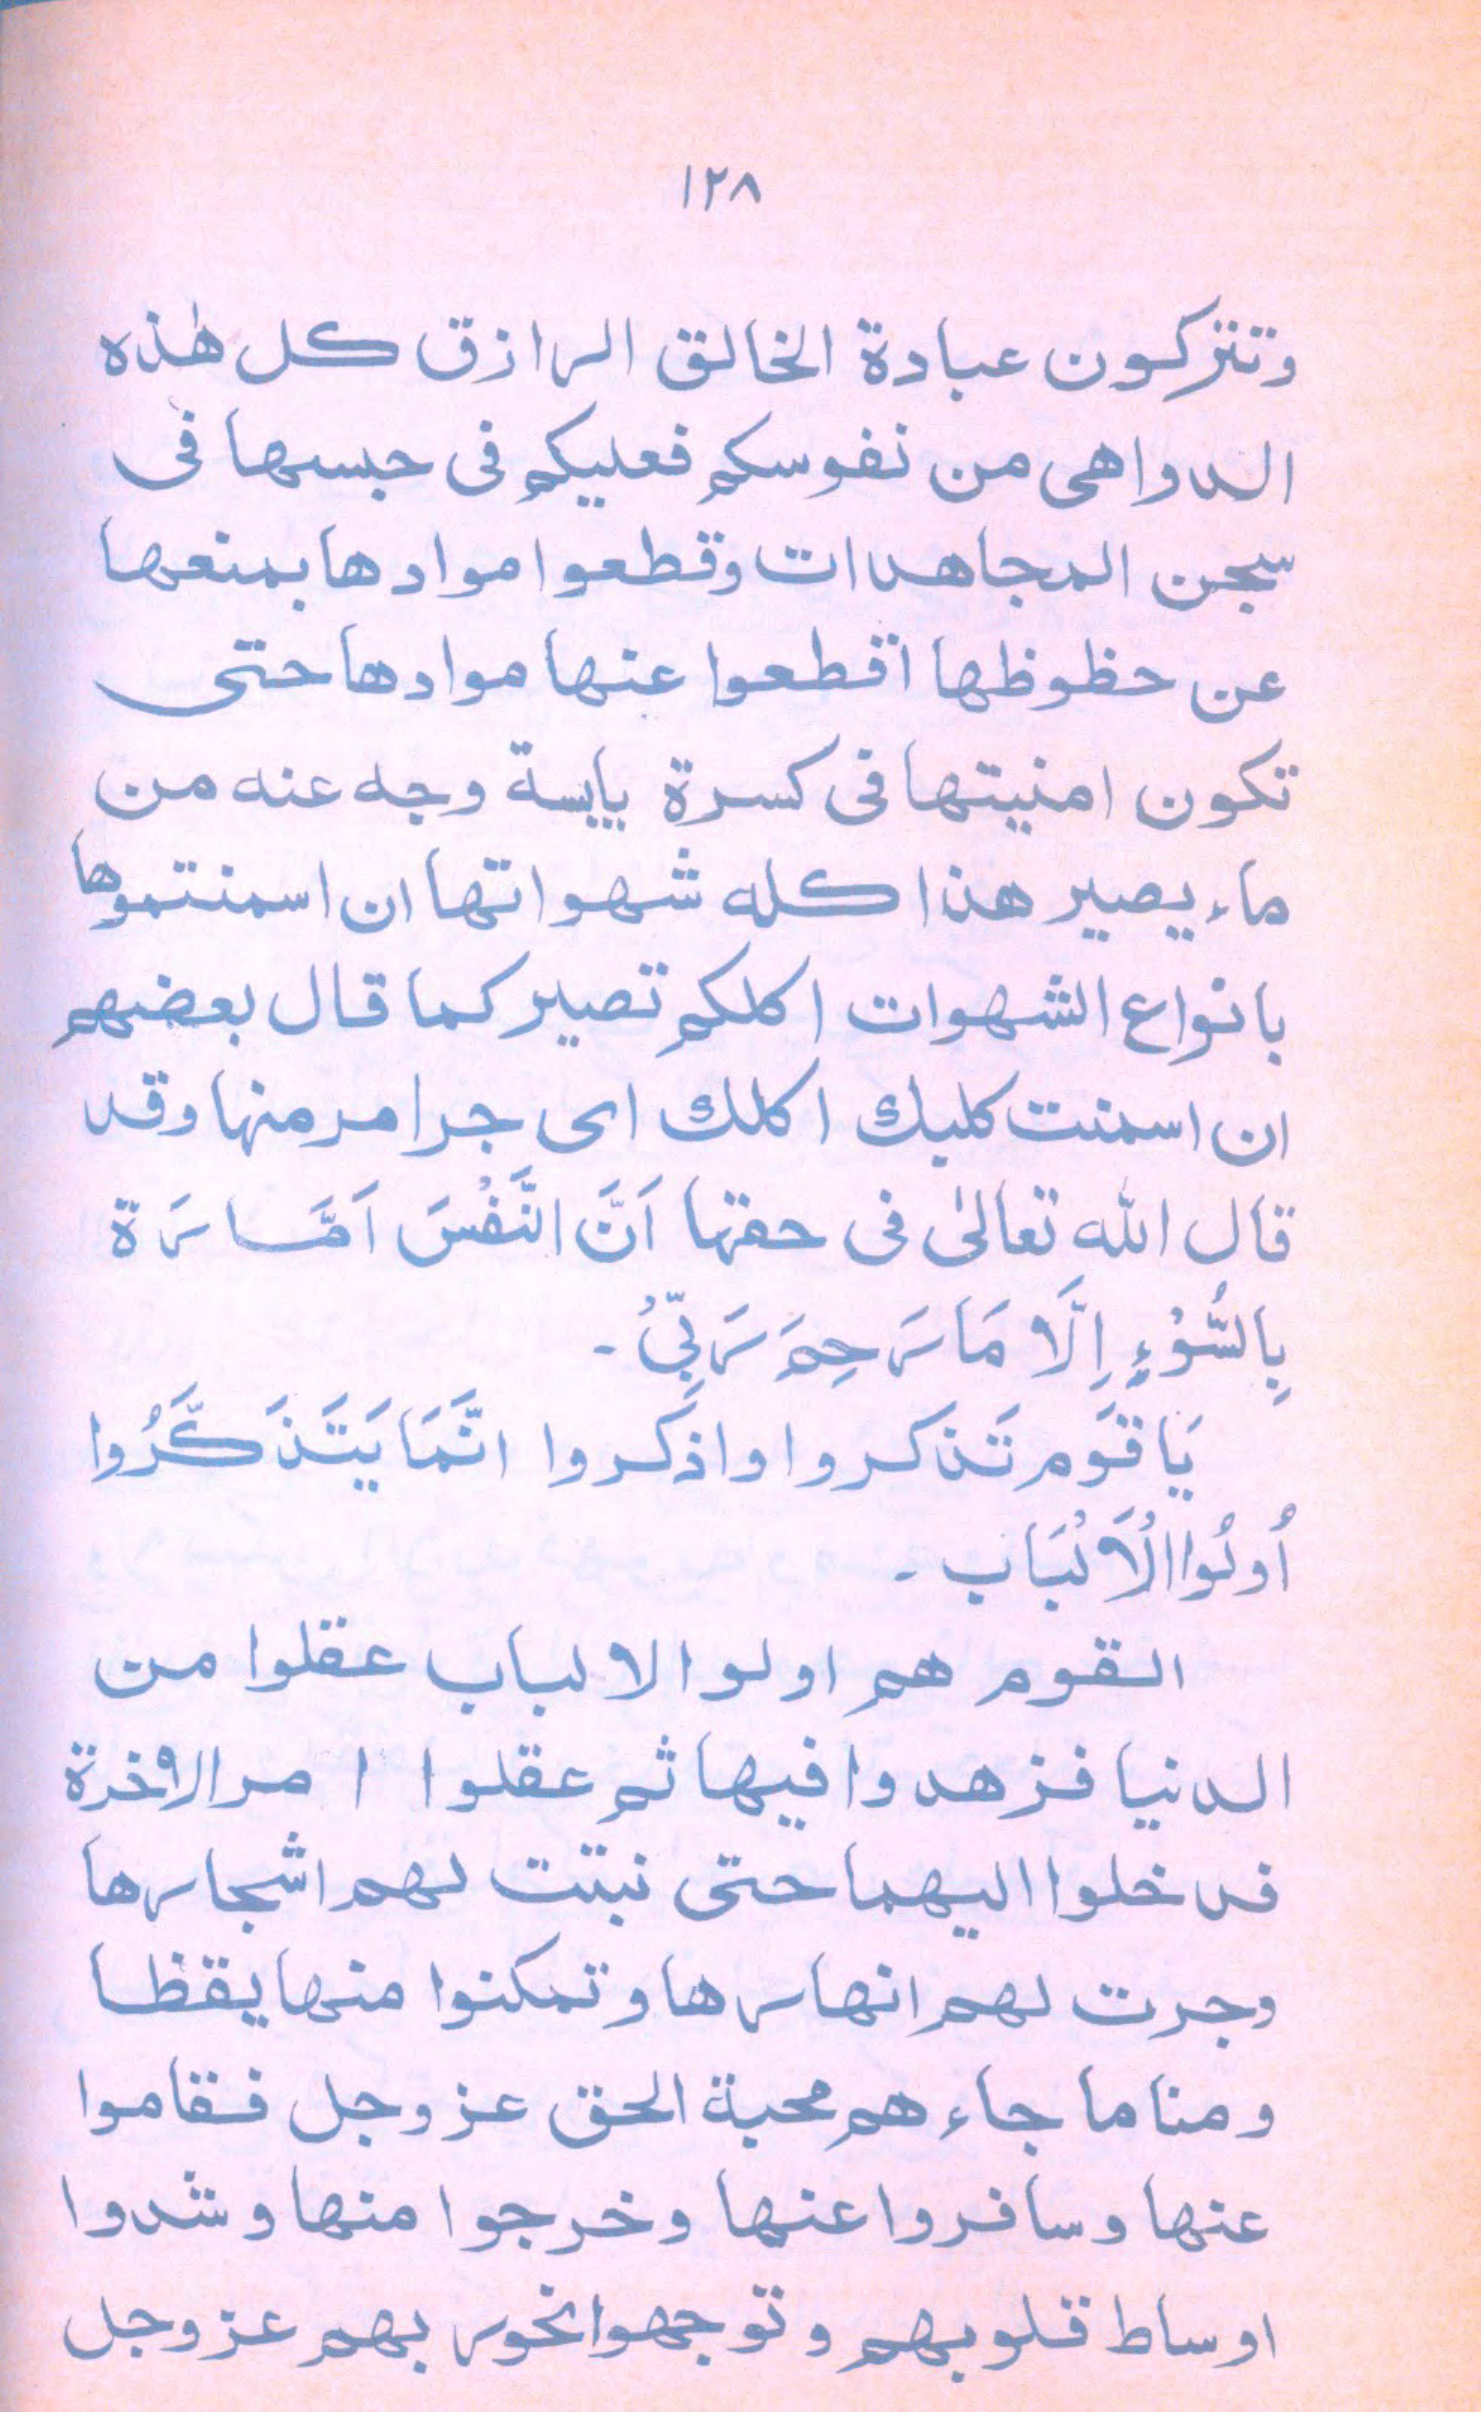 ١٢٨
وتتركون عبادة الخالق الرازق كل هٰذه
الدواهى من نفوسكم فعليكم فى حبسها فى
سجن المجاهدات وقطعوا موادها بمنعها
عن حظوظها اقطعوا عنها موادها حتى
تكون امنيتها فى كسرة يابسة وجه عنه من
ماء يصير هذا كله شهواتها ان اسمنتموها
بانواع الشهوات اكلكم تصير كما قال بعضهم
ان اسمنت كلبك اكلك اى جرا مر منها وقد
قال الله تعالىٰ فى حقها اَنَّ النَّفْسَ اَمَّارَة
بِالسُّوْءِ اِلَّا مَا رَحِمَ رَبِّىْ -
يَا قَوَم تَذكروا واذكروا انَّمَا يَتَذَكَّرُوا
أُولُوا الْاَلْبَاب -
القوم هم اولو الالباب عقلوا من
الدنيا فزهدوا فيها ثم عقلوا امر الاٰخرة
فدخلوا اليهما حتى نبتت لهم اشجارها
وجرت لهم انهارها وتمكنوا منها يقظا
ومناما جاءهم محبة الحق عزوجل فقاموا
عنها وسافروا عنها وخرجوا منها وشدوا
اوساط قلوبهم وتوجهوا نحو ربهم عزوجل